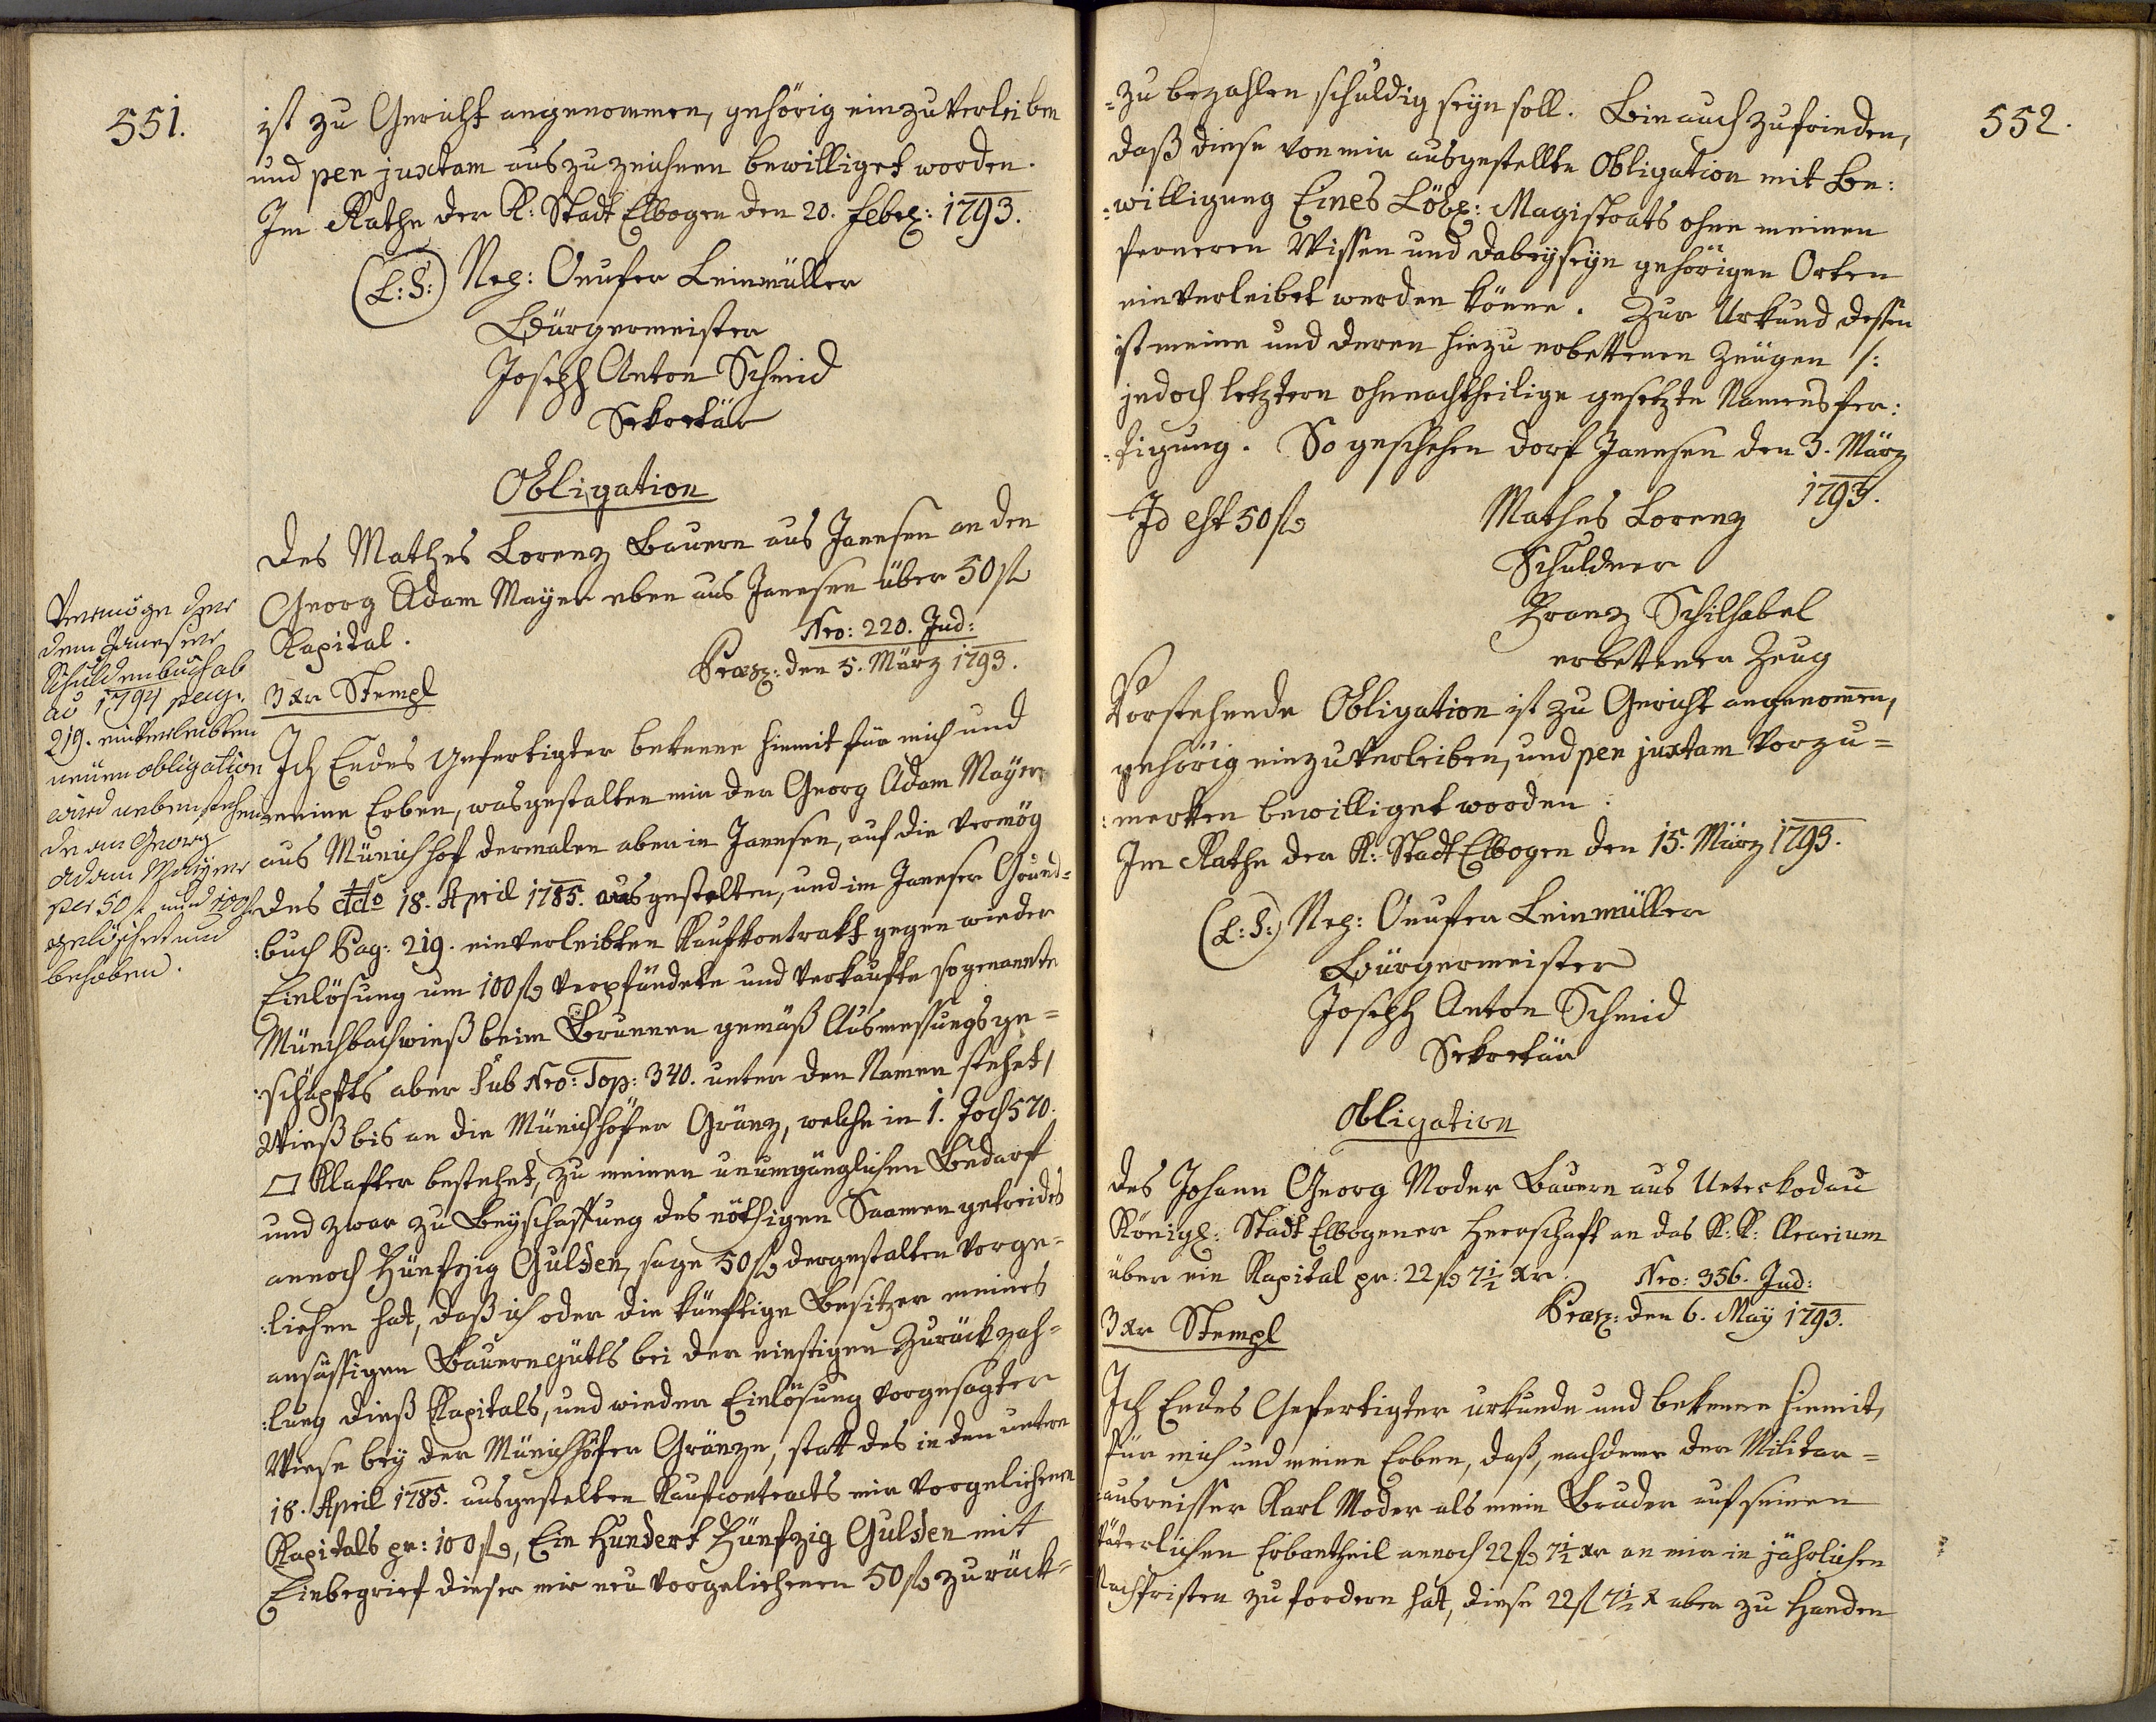 551.
ist zu Gericht angenommen, gehörig einzuverleiben
und per juxtam auszuzeichnen bewilliget worden.
Im Rathe der K: Stadt Elbogen den 20. Febr: 1793.
(L:S:) Nep: Onufer Leinmüller
Bürgermeister
Joseph Anton Schmid
Sekretär
Obligation
des Mathes Lorenz Bauern aus Janesen an den
Georg Adam Mayer eben aus Janesen über 50 fl
Kapital.
Nro: 220. Jud:
Præs: den 5. März 1793.
3 xr Stempl
Vermöge der
dem Janeser
Schuldenbuch ab
ao 1794 pag.
219. einverleibten
neuen obligation
wird nebenstehen
de an Georg
Adam Mayer
per 50 f und 100 f
gelöschet und
behoben.
Ich Endes Gefertigter bekenne hiemit für mich und
meine Erben, wasgestalten mir der Georg Adam Mayer
aus Münichhof dermalen aber in Janesen, auf die vermög
des ddo 18. April 1785. ausgestelten, und im Janeser Grund=
:buch Pag: 219. einverleibten Kaufkontrakt gegen wieder
Einlösung um 100 fl verpfändete und verkaufte sogenannte
Münchbachwieß beim Brunnen gemäß Ausmessungsge=
:schäpfts aber sub Nro: Top: 340. unter den Namen stehet,
Wieß bis an die Münichhöfer Gränz, welche in 1. Joch 570.
□ Klafter bestehet, zu meinen unumgänglichen Bedarf
und zwar zu Beyschaffung des nöthigen Saamengetreides
annoch Fünfzig Gulden, sage 50 fl dergestalten vorge=
:liehen hat, daß ich oder die künftige Besitzer meines
ansässigen Bauerngütls bei der einstigen Zurückzah=
:lung dieß Kapitals, und wieder Einlösung vorgesagter
Wiese bey der Münichhöfer Gränze, statt des in den untern
18. April 1785. ausgestelten Kaufcontracts mir vorgeliehenen
Kapitals pr: 100 fl, Ein Hundert Fünfzig Gulden mit
Einbegrief dieser mir neu vorgeliehenen 50 fl zurück=
552.
=zu bezahlen schuldig seyn soll. Bin auch zufrieden,
daß diese von mir ausgestellte Obligation mit Be:
:willigung Eines Löbl: Magistrats ohne meinen
ferneren Wissen und dabeyseyn gehörigen Orten
einverleibet werden könne. Zur Urkund dessen
ist meine und deren hiezu erbettenen Zeugen /:
jedoch letztern ohnnachtheilige gesetzte Namensfer:
:tigung. So geschehen Dorf Janesen den 3. März
1793.
Id est 50 fl
Mathes Lorenz
Schuldner
Franz Schilhabel
erbetener Zeug
Vorstehende Obligation ist zu Gericht angenommen,
gehörig einzuverleiben, und per juxtam vorzu=
:merken bewilliget worden.
Im Rathe der K: Stadt Elbogen den 15. März 1793.
(L:S:) Nep: Onufer Leinmüller
Bürgermeister
Joseph Anton Schmid
Sekretär
Obligation
des Johann Georg Moder Bauern aus Unterkodau
Königl: Stadt Elbogener Herrschaft an das K: K: Aerarium
über ein Kapital pr: 22 fl 7½ xr.
Nro: 356. Jud:
Præs: den 6. May 1793.
3 xr Stempl
Ich Endes Gefertigter urkunde und bekenne hiemit,
für mich und meine Erben, daß, nachdeme der Militar=
:ausreisser Karl Moder als mein Bruder auf seinen
väterlichen Erbantheil annoch 22 fl 7½ xr an mir in jährlichen
Nachfristen zu fordern hat, diese 22 fl 7½ x aber zu Handen